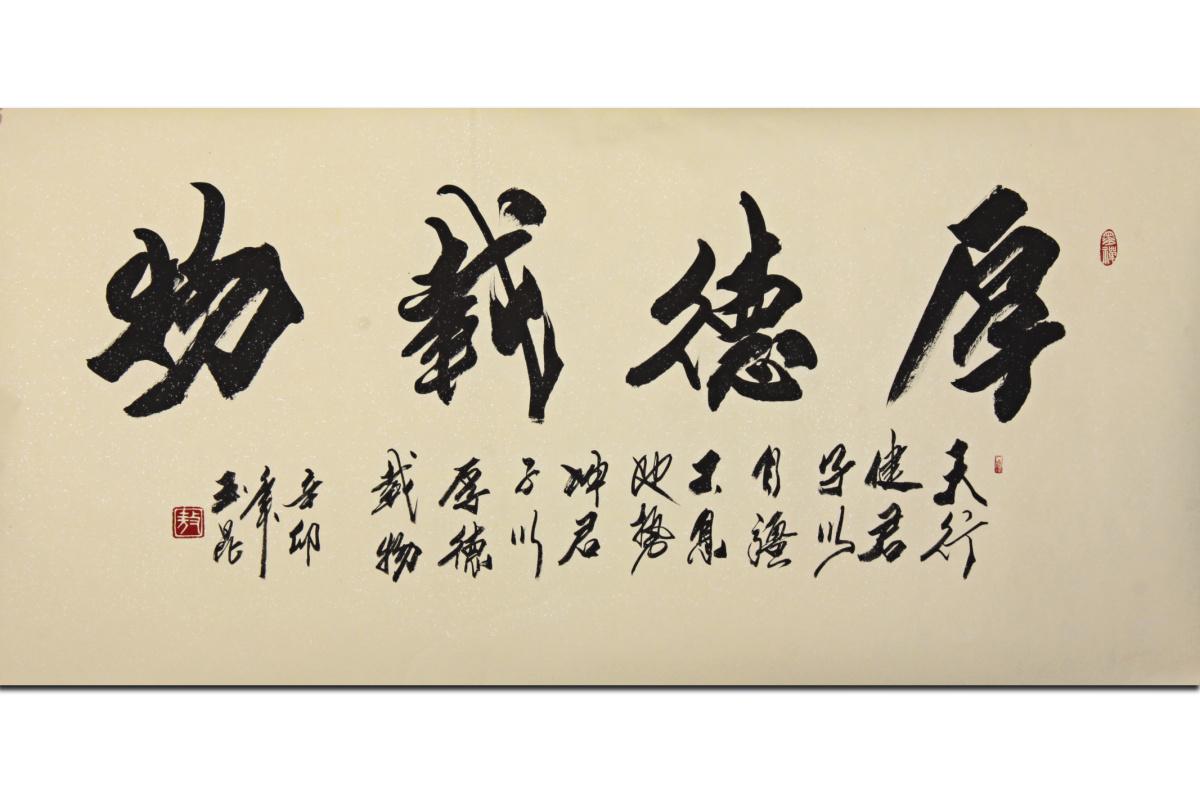 厚德載物
天行
健君
子以
自强
不息
地势
坤君
子以
厚德
載物
辛卯
年
玉昆
敖